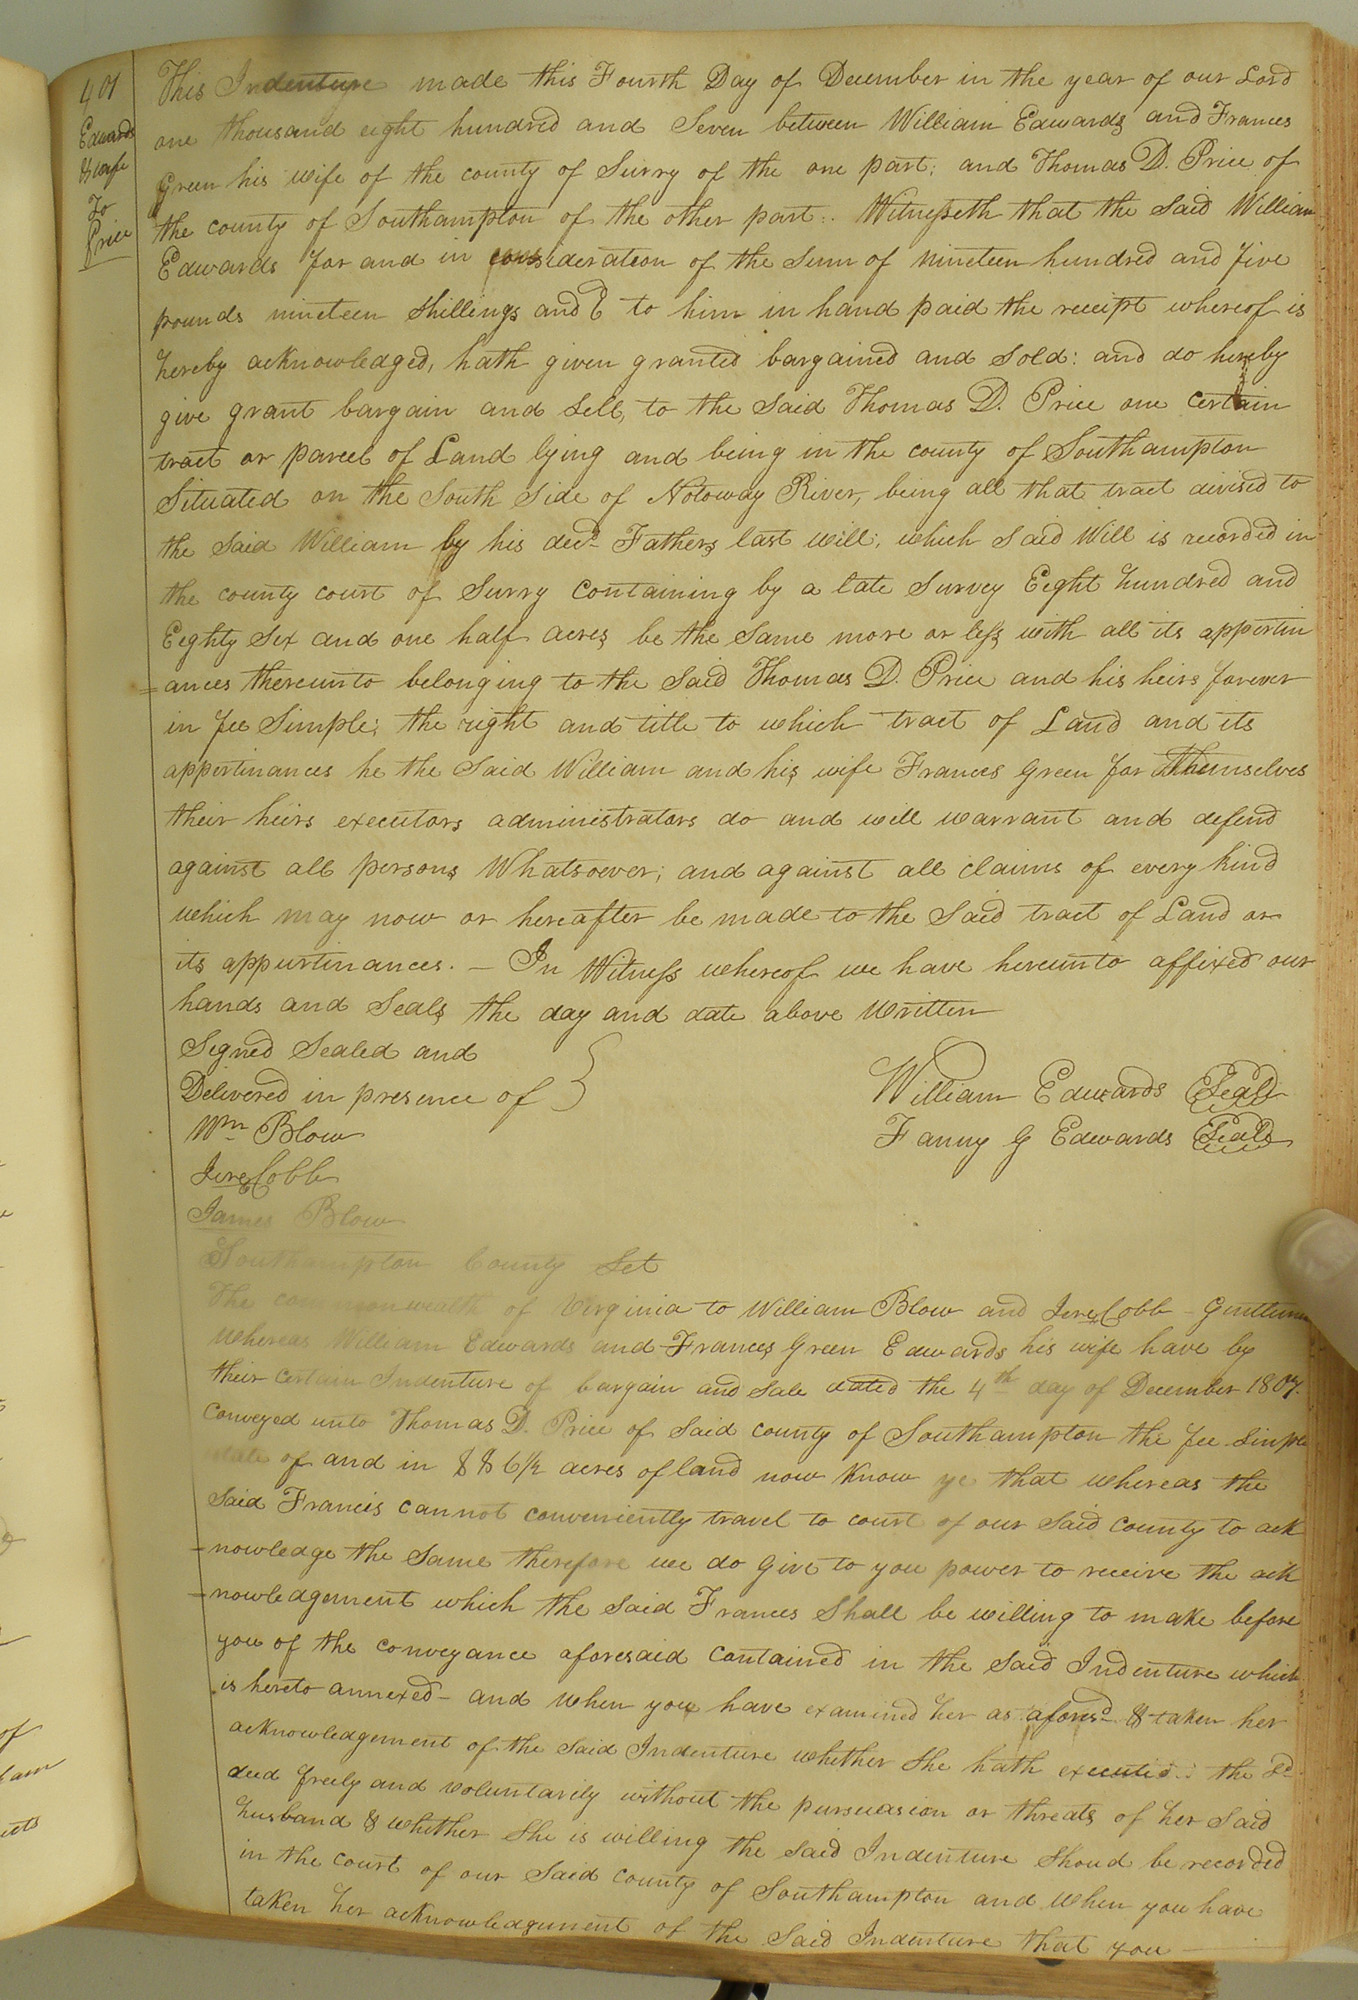 401
Edwards
& wife
To
Price
This Indenture made this Fourth Day of December in the year of our Lord
one thousand eight hundred and Seven between William Edwards and Frances
Green his wife of the county of Surry of the one part; and Thomas D. Price of
the county of Southampton of the other part: Witnesseth that the Said William
Edwards for and in consideration of the Sum of nineteen hundred and five
pounds nineteen Shillings and 6 to him in hand paid the receipt whereof is
hereby acknowledged, hath given granted bargained and Sold: and do hereby
give grant bargain and Sell, to the Said Thomas D. Price one certain
tract or parcel of Land lying and being in the county of Southampton
Situated on the South Side of Notoway River, being all that tract divised to
the Said William by his decd. Fathers last will; which Said Will is recorded in
the county court of Surry Containing by a late Survey Eight hundred and
Eighty Six and one half acres be the Same more or less with all its appertin
=ances thereunto belonging to the Said Thomas D. Price and his heirs forever
in fee Simple; the right and title to which tract of Land and its
appertinances he the Said William and his wife Frances Green for themselves
their heirs executors administrators do and will warrant and defend
against all persons Whatsoever; and against all claims of every kind
which may now or hereafter be made to the Said tract of Land or
its appurtinances. — In Witness whereof we have hereunto affixed our
hands and Seals the day and date above written
Signed Sealed and
Delivered in presence of }
William Edwards Seal
Wm Blow
Fanny G Edwards Seal
Jere Cobb
James Blow
Southampton County Set
The commonwealth of Virginia to William Blow and Jere Cobb - Gentlemen
Whereas William Edwards and Frances Green Edwards his wife have by
their certain Indenture of bargain and Sale dated the 4th day of December 1807.
Conveyed unto Thomas D. Price of Said county of Southampton the fee Simple
state of and in 886½ acres of land now Know ye that whereas the
Said Francis cannot conveniently travel to court of our Said county to ack
=nowledge the Same therefore we do give to you power to receive the ack
=nowledgement which the Said Frances Shall be willing to make before
you of the conveyance aforesaid contained in the Said Indenture which
is hereto annexed - and when you have examined her as aforesd. & taken her
acknowledgement of the Said Indenture whether She hath executed the Sd.
deed freely and voluntarily without the pursuasion or threats of her Said
husband & whether She is willing the Said Indenture Shoud be recorded
in the court of our Said county of Southampton and when you have
taken her acknowledgement of the Said Indenture that you